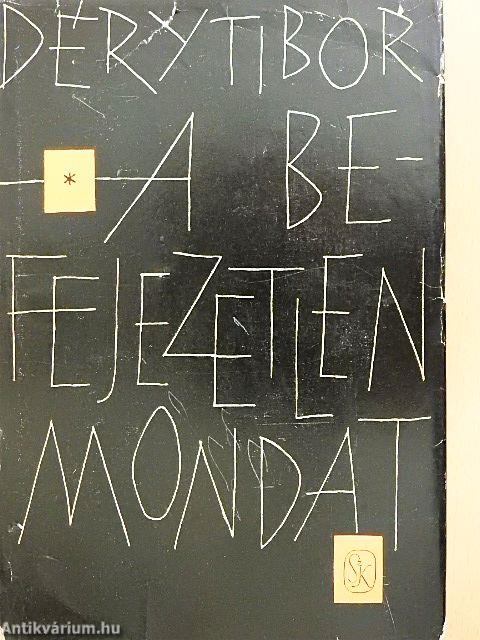 DÉRY TIBOR
* A BE-
FEJEZETLEN
MONDAT
SzK
Antikvárium.hu